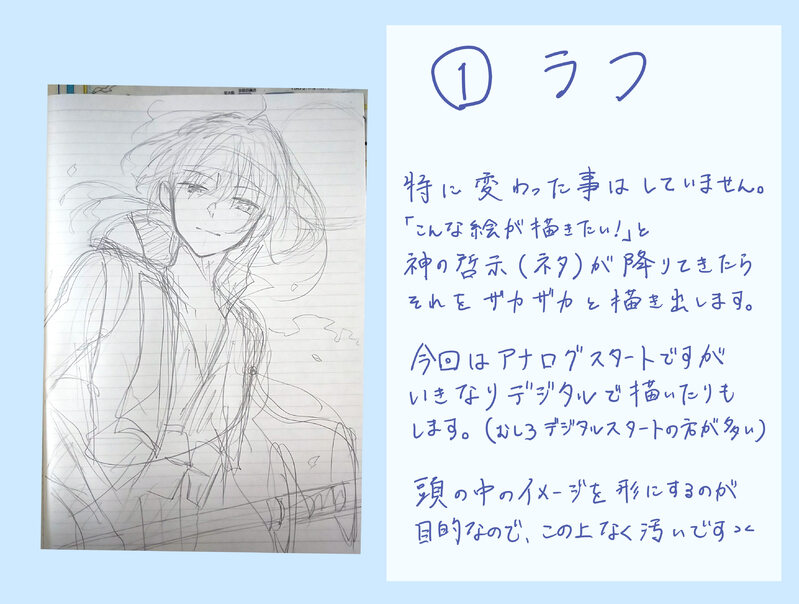 ① ラフ
特に変わった事はしていません。
「こんな絵が描きたい!」と
神の啓示(ネタ)が降りてきたら
それをザカザカと描き出します。
今回はアナログスタートですが
いきなりデジタルで描いたりも
します。(むしろデジタルスタートの方が多い)
頭の中のイメージを形にするのが
目的なので、この上なく汚いです><